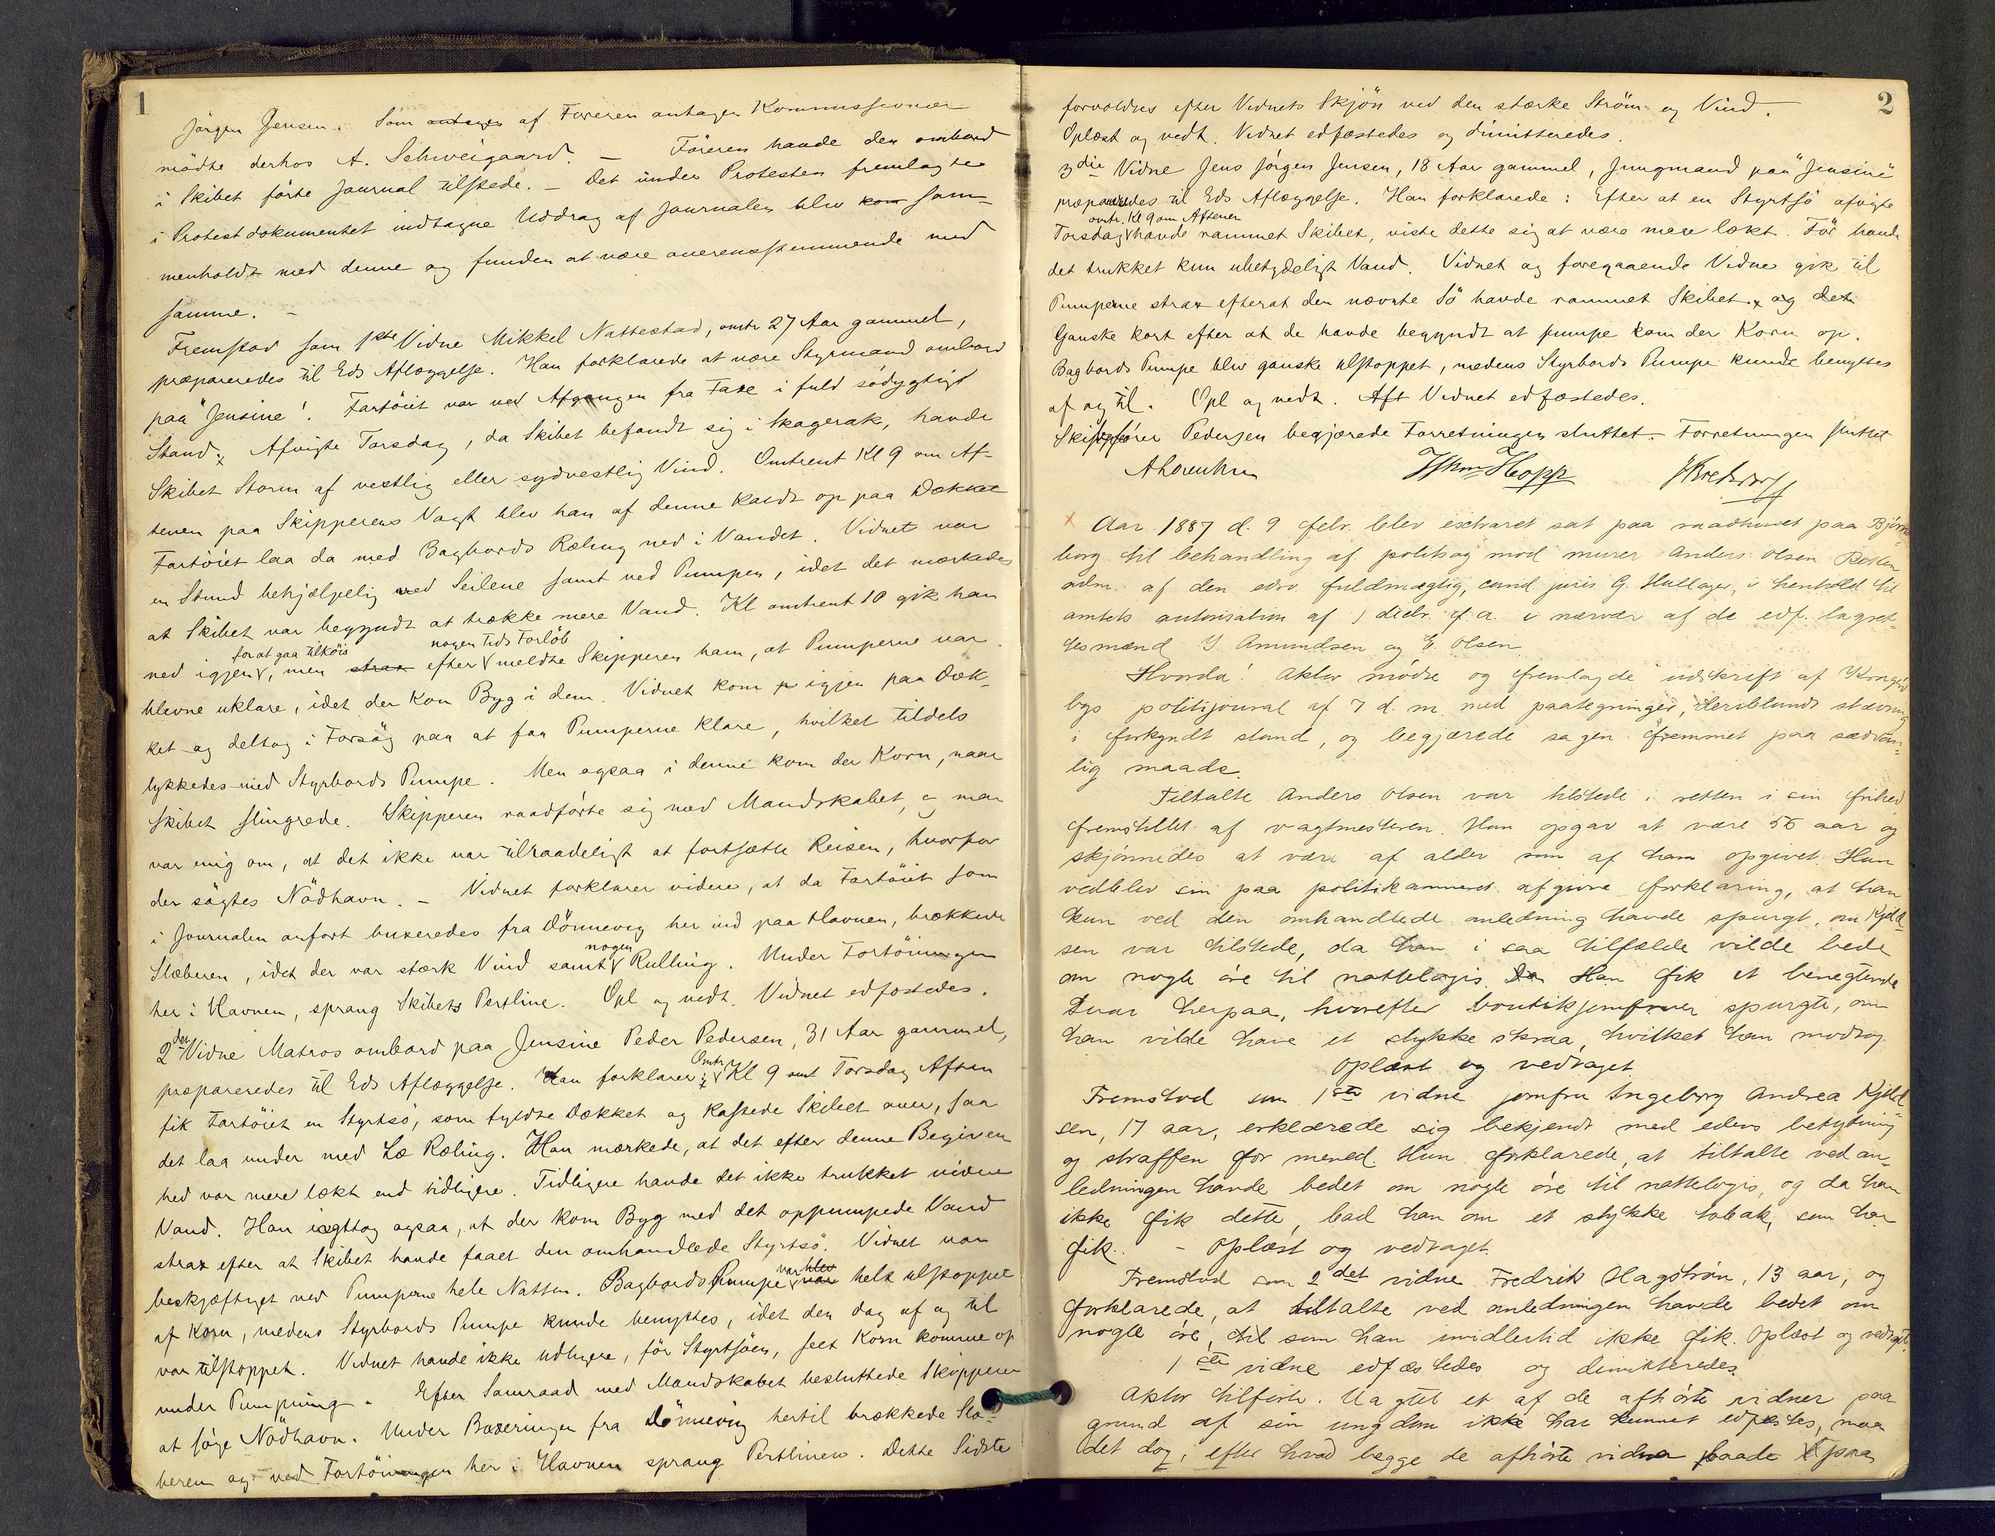 1
Jörgen Jensen. Som antages af Föreren antagen Kommissionær
mödte derhos A. Schweigaard. — Föreren havde den ombord
i Skibet förte Journal tilstede. — Det under Protesten fremlagte
i Protestdokumentet indtagne Uddrag af Journalen blev kom sam-
menholdt med denne og funden at være overensstemmende med
samme. —
Fremstod som 1ste Vidne Mikkel Nattestad, omtr 27 Aar gammel,
præpareredes til Eds Aflæggelse. Han forklarede at være Styrmand ombord
paa "Jensine". Fartöiet var ved Afgangen fra Faxe i fuld södygtigt
Stand. Afvigte Torsdag, da Skibet befandt sig i Skagerak, havde
Skibet Storm af vestlig eller sydvestlig Vind. Omtrent Kl 9 om Af-
tenen paa Skipperens Vagt blev han af denne kaldt op paa Dækket
Fartöiet laa da med Bagbords Ræling ned i Vandet. Vidnet var
en Stund behjælpelig ved Seilene samt ved Pumpen, idet det mærkedes
at Skibet var begyndt at trække mere Vand. Kl omtrent 10 gik han
for at gaa tilköis nogen Tids Forlöb
ned igjen, men strax efter meldte Skipperen ham, at Pumperne var
blevne uklare, idet der kom Byg i dem. Vidnet kom igjen paa Dæk-
ket og deltog i Forsög paa at faa Pumperne klare, hvilket tildels
lykkedes med Styrbords Pumpe. Men ogsaa i denne kom der Korn, naar
Skibet slingrede. Skipperen raadförte sig med Mandskabet, og man
var enig om, at det ikke var tilraadeligt at fortsætte Reisen, hvorfor
der sögtes Nödhavn. — Vidnet forklarer videre, at da Fartöiet som
i Journalen anfört buxeredes fra Dönnevig her ind paa Havnen, brækkede
nogen
Slæberen, idet der var stærk Vind samt Rulling. Under Fortöiningen
her i Havnen, sprang Skibets Pertline. Opl og vedt. Vidnet edfæstedes.
2det Vidne Matros ombord paa Jensine Peder Pedersen, 31 Aar gammel,
Omtr
præpareredes til Eds Aflæggelse. Han forklarer: Kl 9 Torsdag Aften
fik Fartöiet en Styrtsö, som fyldte Dækket og kastede Skibet over, saa
det laa under med Læ Ræling. Han mærkede, at det efter denne Begiven
hed var mere lækt end tidligere. Tidligere havde det ikke trukket videre
Vand. Han iagttog ogsaa, at der kom Byg med det oppumpede Vand
strax efter at Skibet havde faaet den omhandlede Styrtsö. Vidnet var
var blev
beskjæftiget ved Pumperne hele Natten. Bagbords Pumpe var helt tilstoppet
af Korn, medens Styrbords Pumpe kunde benyttes, idet den dog af og til
var tilstoppet. Vidnet havde ikke tidligere, för Styrtsöen, seet Korn komme op
under Pumpning. Efter Samraad med Mandskabet besluttede Skipperen
at söge Nödhavn. Under Buxeringen fra Dönnevig hertil brækkede Slæ-
beren og ved Fortöiningen her i Havnen sprang Pertlinen. Dette Sidste
2
forvoldtes efter Vidnets Skjön ved den stærke Ström og Vind.
Oplæst og vedt. Vidnet edfæstedes og dimitteredes.
3die Vidne Jens Jörgen Jensen, 18 Aar gammel, Jungmand paa "Jensine"
præpareredes til Eds Aflæggelse. Han forklarede: Efter at en Styrtsö afvigte
omtr. Kl 9 om Aftenen
Torsdag havde rammet Skibet, viste dette sig at være mere lækt. Før havde
det trukket kun ubetydeligt Vand. Vidnet og foregaaende Vidne gik til
Pumperne strax efterat den nævnte Sö havde rammet Skibet. og det
Ganske kort efter at de havde begyndt at pumpe kom der Korn op.
Bagbords Pumpe blev ganske tilstoppet, medens Styrbords Pumpe kunde benyttes
af og til. Opl og vedt. Aft Vidnet edfæstedes.
Skipsförer Pedersen begjærede Forretningen sluttet. Forretningen sluttet
Hopp
Aar 1887 d. 9 febr. blev extraret sat paa raadhuset paa
borg til behandling af politisag mod murer Anders Olsen
adm. af den edsv fuldmægtig, cand juris G Hallager, i henhold til
amtets autorisation af 1 decbr. f.a. i nærvær af de edf. lagret-
tesmænd J Amundsen og E. Olsen.
Hvorda! Aktor mødte og fremlagde udskrift af
bys politijournal af 7 d. m. med paategninger, stævning
i forkyndt stand, og begjærede sagen fremmet paa sædvan-
lig maade.
Tiltalte Anders Olsen var tilstede i retten i sin frihed
fremstillet af vagtmesteren. Han opgav at være 56 aar og
skjønnedes at være af alder som af ham opgivet. Han
vedblev sin paa politikammeret afgivne forklaring, at han
kun ved den omhandlede anledning havde spurgt, om Kjeld-
sen var tilstede, da han i saa tilfælde vilde bede
om nogle øre til nattelogis. Han fik et benegtende
svar herpaa, hvorefter boutikjomfruen spurgte, om
han vilde have et stykke skraa, hvilket han modtog.
Oplæst og vedtaget
Fremstod som 1ste vidne jomfru Ingeborg Andrea Kjeld
sen, 17 aar, erklærede sig bekjendt med edens betydning
og straffen for mened. Hun forklarede, at tiltalte ved an-
ledningen havde bedet om nogle øre til nattelogis, og da han
ikke fik dette, bad han om et stykke tobak, som han
fik. — Oplæst og vedtaget.
Fremstod som 2det vidne Fredrik Hagstrøm, 13 aar, og
forklarede, at tiltalte ved anledningen havde bedet om
nogle øre, som han imidlertid ikke fik. Oplæst og vedtaget.
1ste vidne edfæstedes og demitteredes.
Aktor tilførte. Uagtet et af de afhørte vidner paa
grund af sin ungdom ikke har kunnet edfæstes, maa
det dog, efter hvad begge de afhørte vidner baade paa